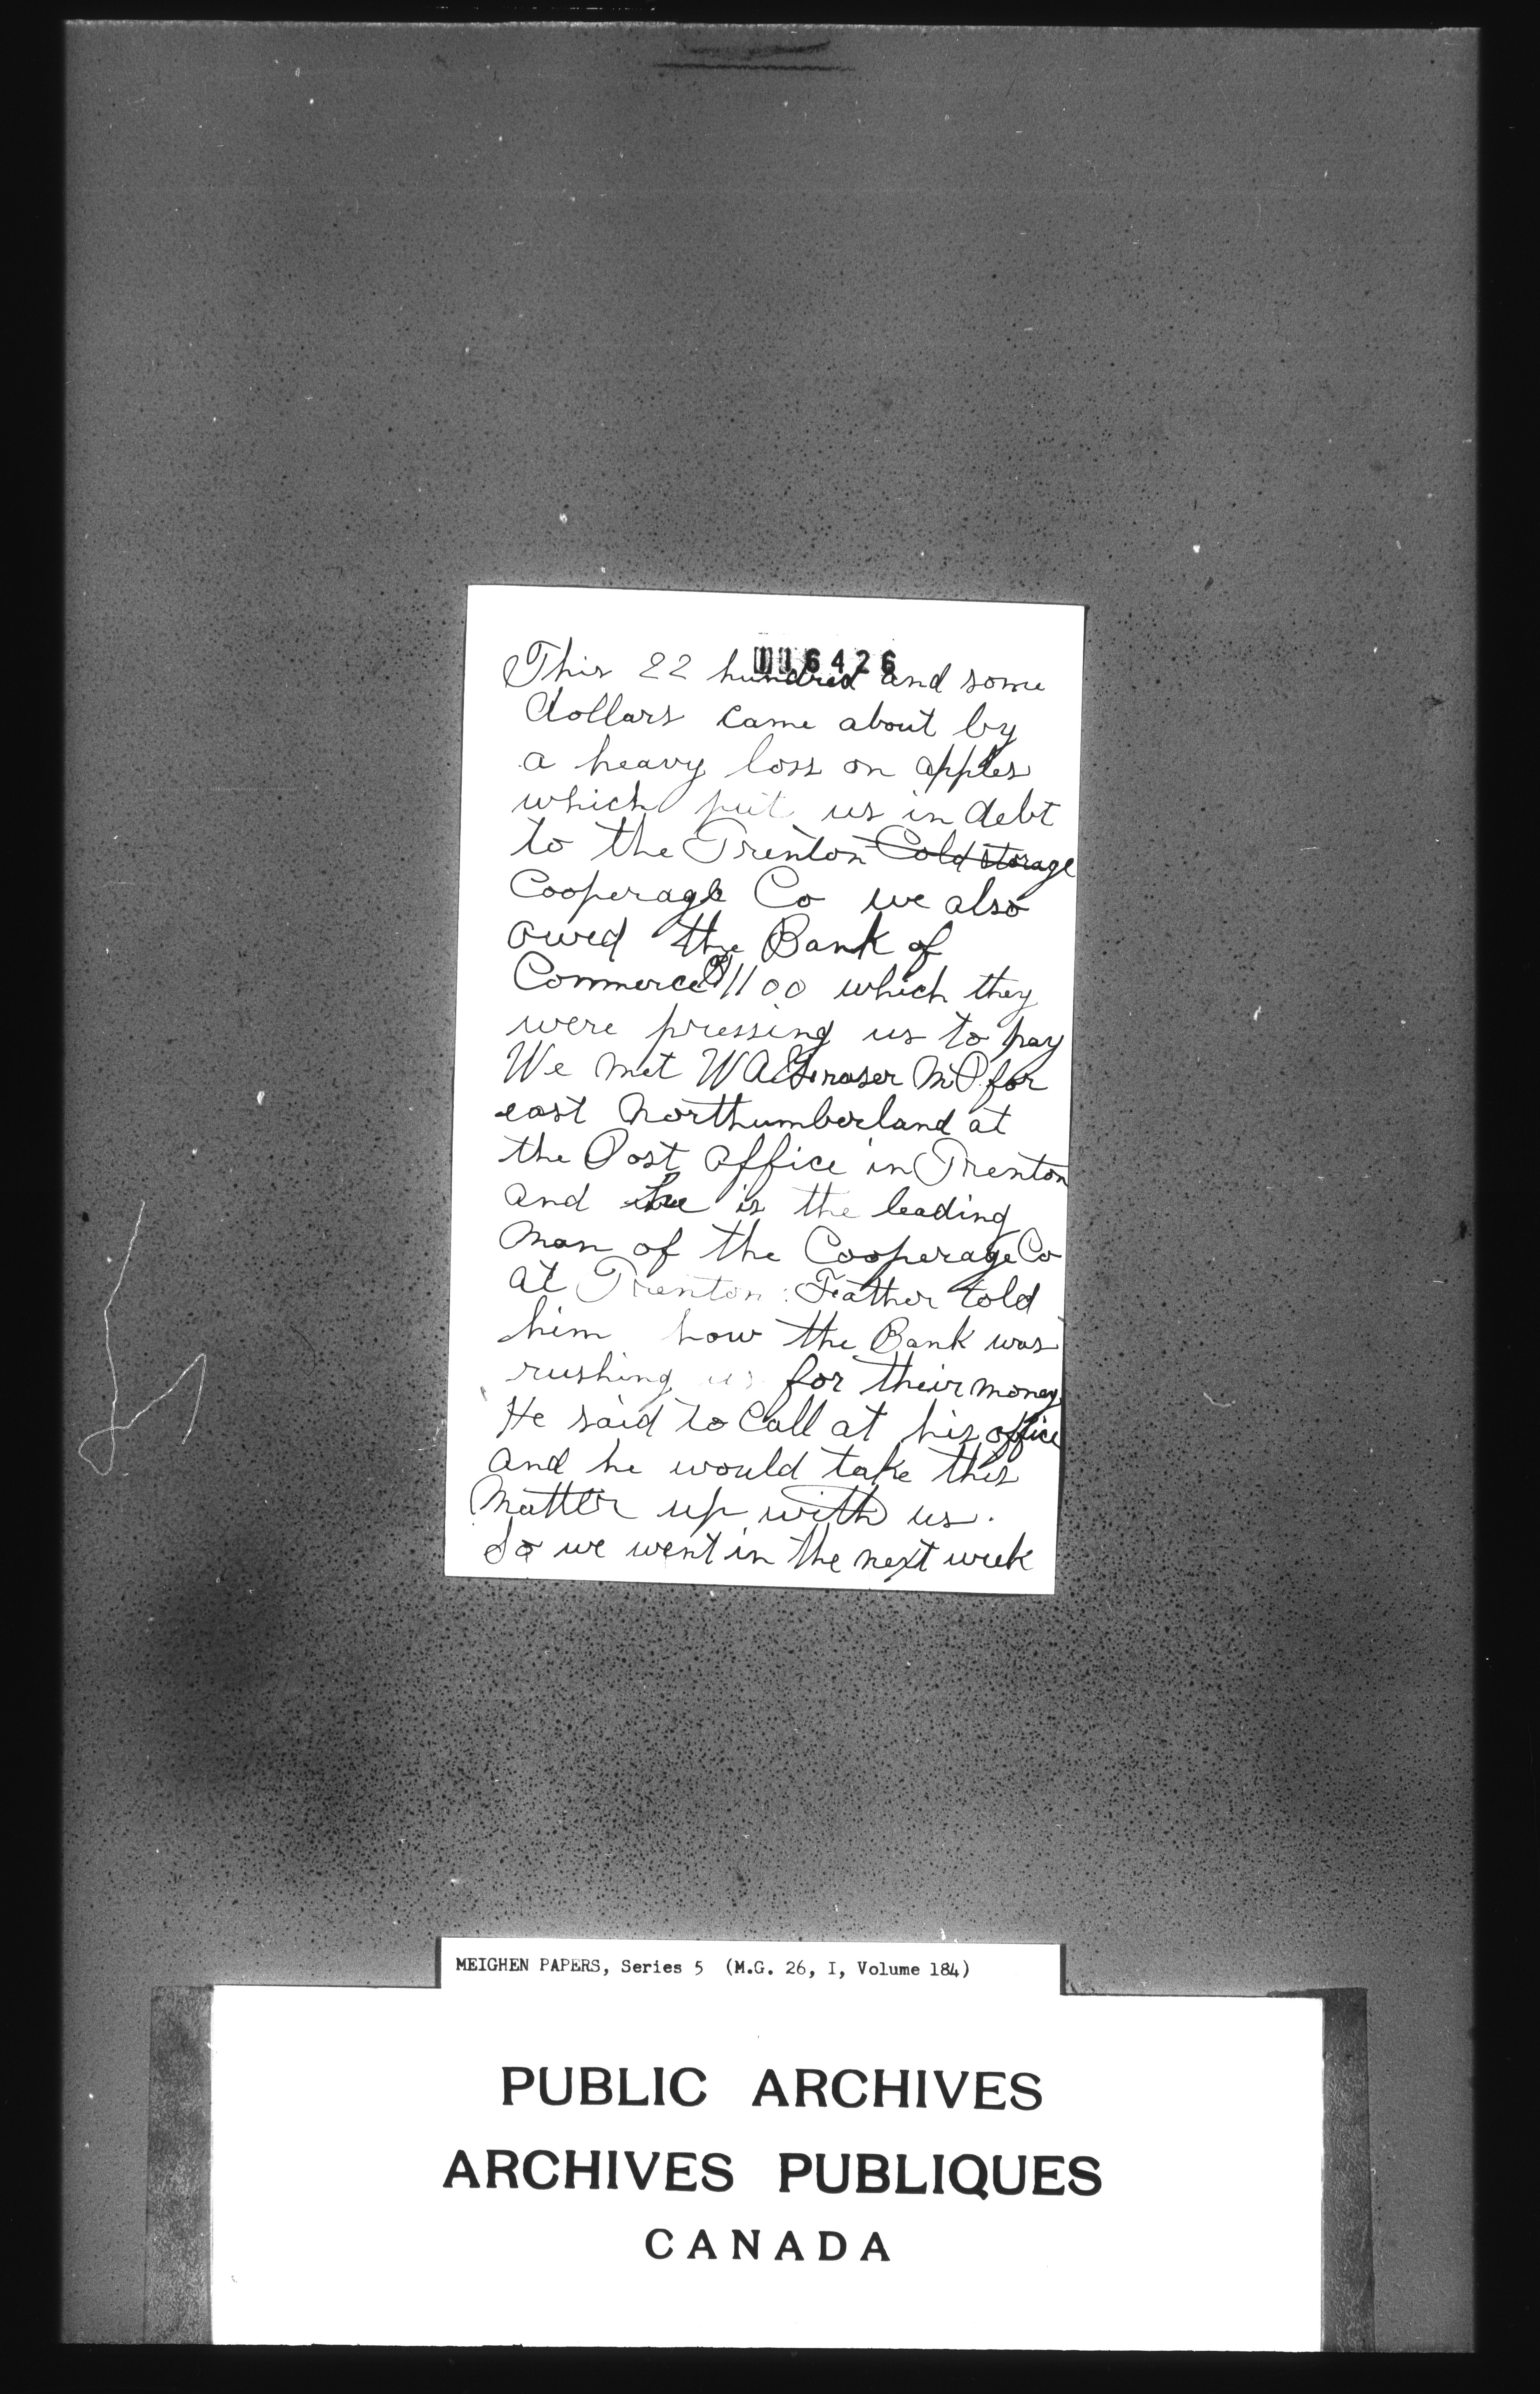 116426
This 22 hundred and some
dollars came about by
a heavy loss on apples
which put us in debt
to the Trenton Cold Storage
Cooperage Co we also
owed the Bank of
Commerce $1100 which they
were pressing us to pay
We met W A Fraser M.P. for
east Northumberland at
the Post office in Trenton
and he is the leading
man of the Cooperage Co
at Trenton. Father told
him how the Bank was
rushing us for their money.
He said to Call at his office
and he would take this
matter up with us.
So we went in the next week
MEIGHEN PAPERS, Series 5 (M.G. 26, I, Volume 184)
PUBLIC ARCHIVES
ARCHIVES PUBLIQUES
CANADA